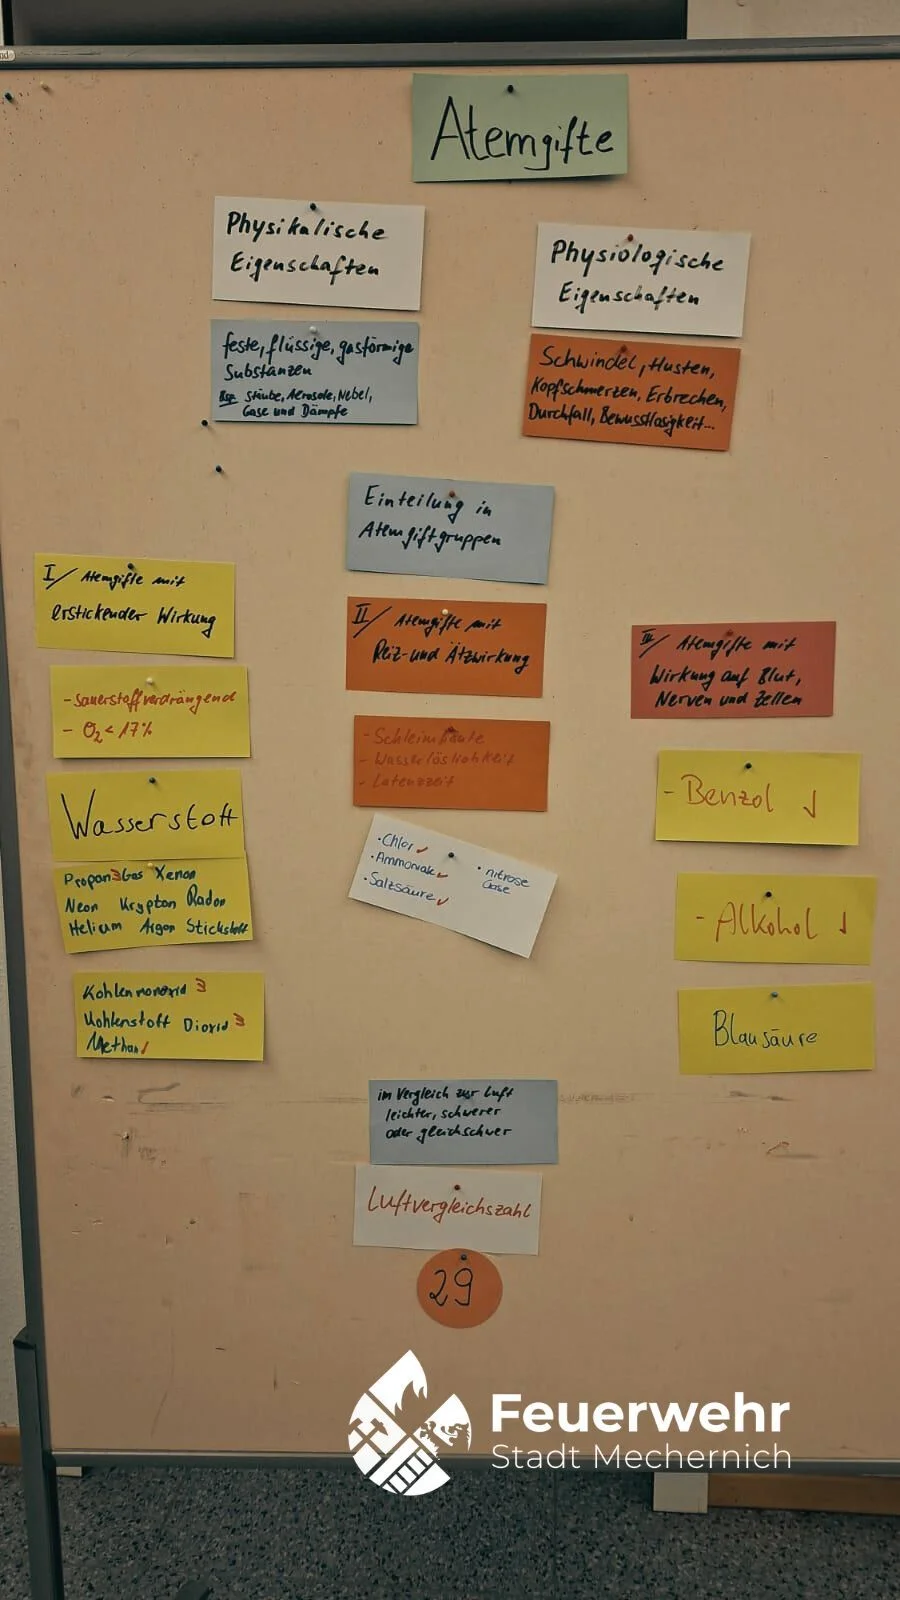 Atemgifte
Physikalische
Eigenschaften
Physiologische
Eigenschaften
feste, flüssige, gasförmige
Substanzen
Bsp. Stäube, Aerosole, Nebel,
Gase und Dämpfe
Schwindel, Husten,
Kopfschmerzen, Erbrechen,
Durchfall, Bewusstlosigkeit...
Einteilung in
Atemgiftgruppen
I/ Atemgifte mit
erstickender Wirkung
- Sauerstoffverdrängend
- O₂ < 17%
Wasserstoff
Propan 3 Gas Xenon
Neon Krypton Radon
Helium Argon Stickstoff
Kohlenmonoxid 3
Kohlenstoff Dioxid 3
Methan
II/ Atemgifte mit
Reiz- und Ätzwirkung
- Schleimhäute
- Wasserlöslichkeit
- Latenzzeit
• Chlor ✓
• Ammoniak ✓
• Salzsäure ✓
• nitrose
Gase
III/ Atemgifte mit
Wirkung auf Blut,
Nerven und Zellen
- Benzol ↓
- Alkohol ↓
Blausäure
im Vergleich zur Luft
leichter, schwerer
oder gleichschwer
Luftvergleichszahl
29
Feuerwehr
Stadt Mechernich